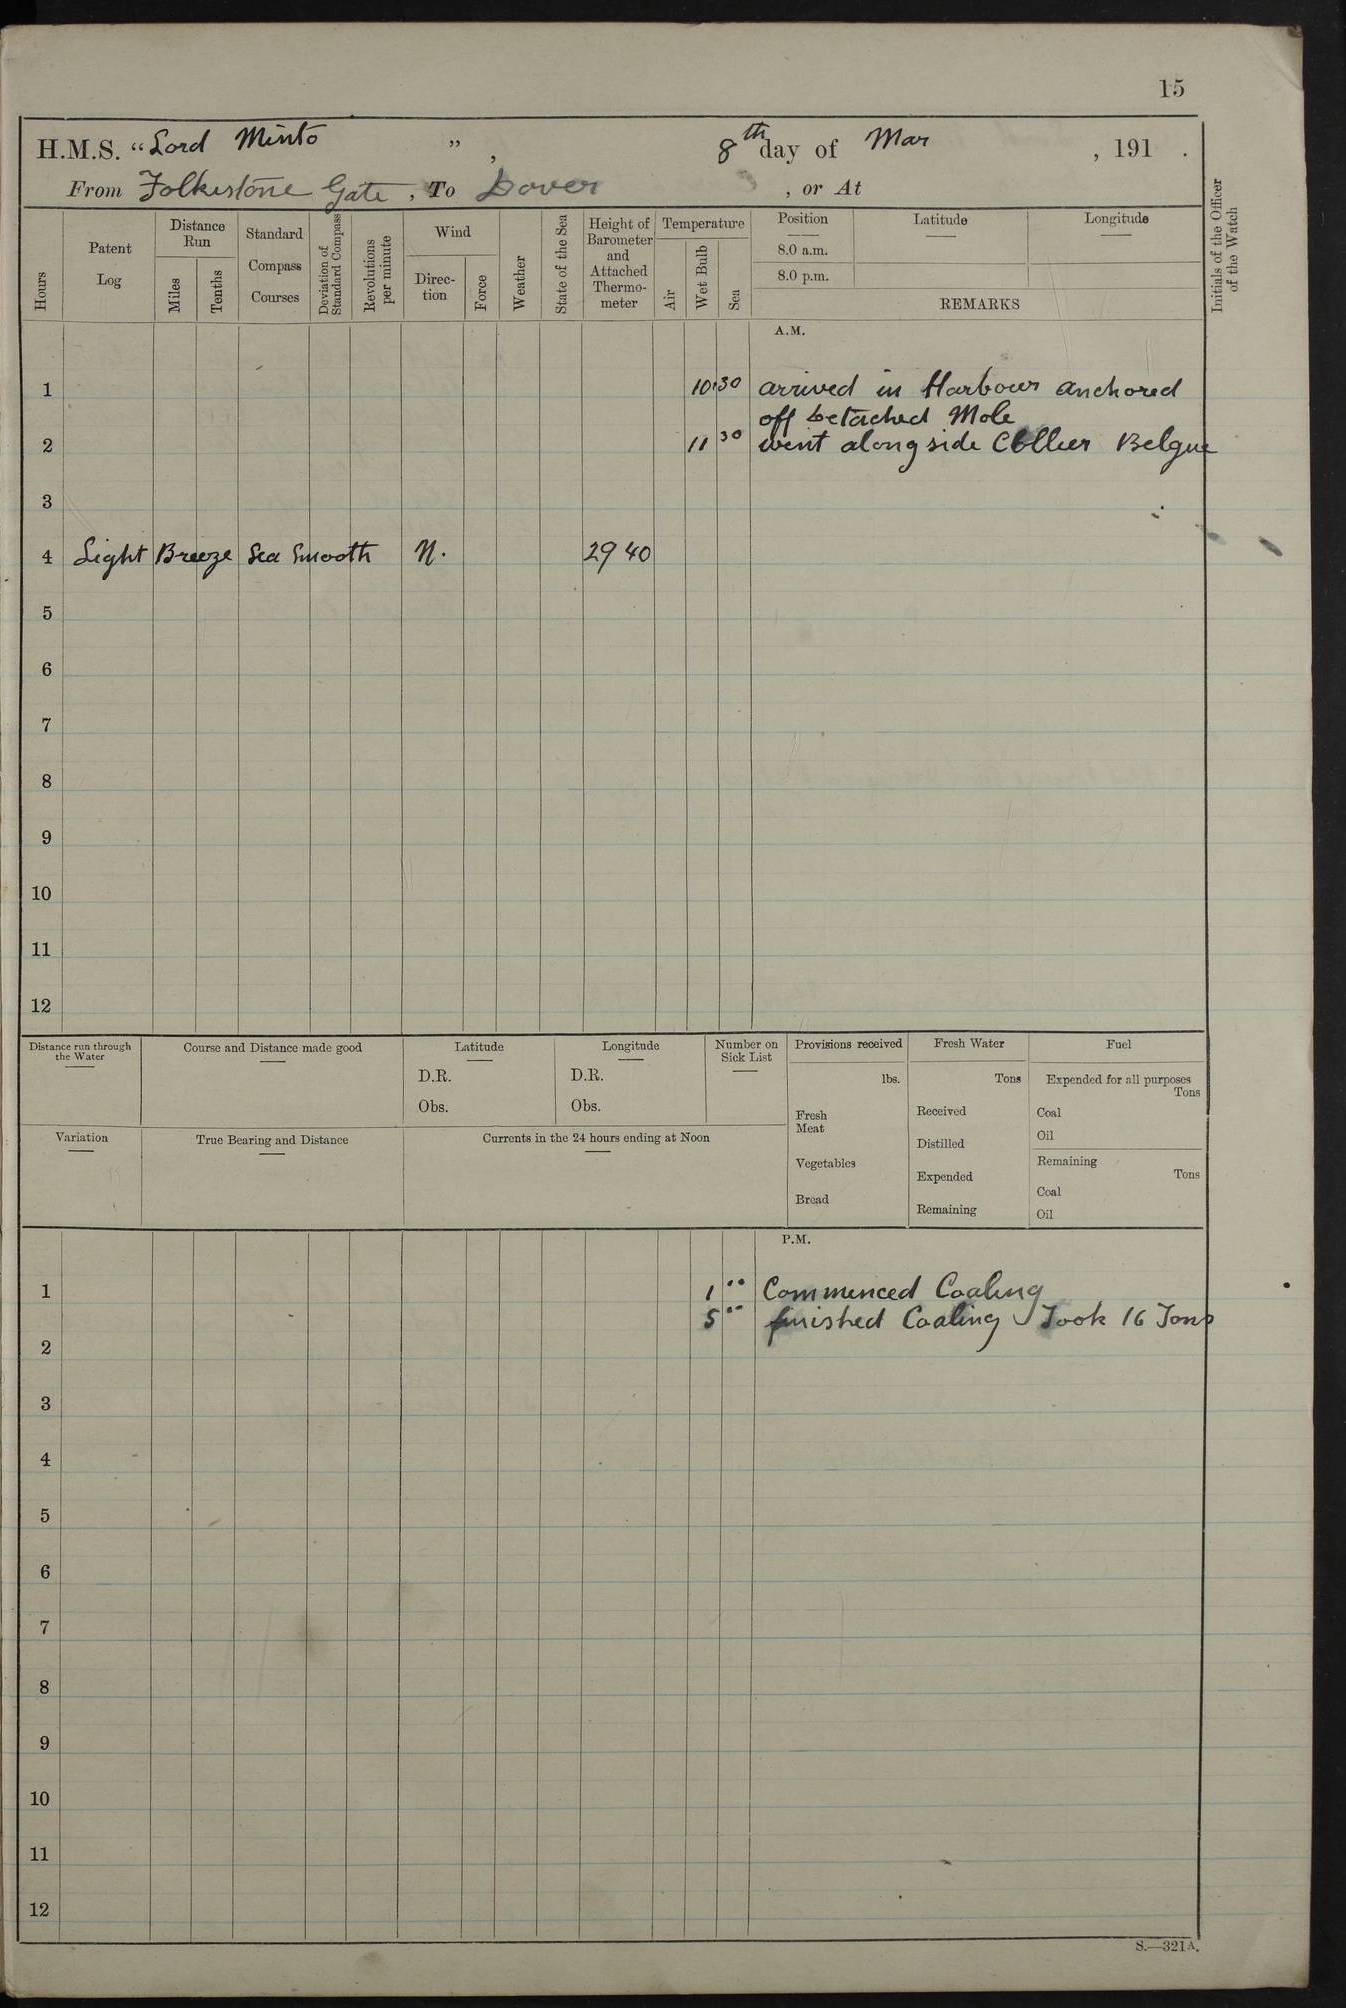 15
H.M.S. “Lord Minto ” , 8th day of Mar , 191 .
From Folkestone Gate , To Dover , or At
Hours
Patent Log
Distance Run
Miles
Tenths
Standard Compass Courses
Deviation of Standard Compass
Revolutions per minute
Wind
Direc-tion
Force
Weather
State of the Sea
Height of Barometer and Attached Thermo-meter
Temperature
Air
Wet Bulb
Sea
Position
Latitude
Longitude
8.0 a.m.
8.0 p.m.
REMARKS
Initials of the Officer of the Watch
A.M.
1 10.30 arrived in Harbour anchored
off Detached Mole
2 11 30 went along side Collier Belgue
3
4 Light Breeze Sea Smooth N. 29 40
5
6
7
8
9
10
11
12
Distance run through the Water
Course and Distance made good
Latitude
D.R.
Obs.
Longitude
D.R.
Obs.
Number on Sick List
Variation
True Bearing and Distance
Currents in the 24 hours ending at Noon
Provisions received
lbs.
Fresh Meat
Vegetables
Bread
Fresh Water
Tons
Received
Distilled
Expended
Remaining
Fuel
Expended for all purposes
Tons
Coal
Oil
Remaining
Tons
Coal
Oil
P.M.
1 1 .. Commenced Coaling
5 .. finished Coaling Took 16 Tons
2
3
4
5
6
7
8
9
10
11
12
S.—321A.